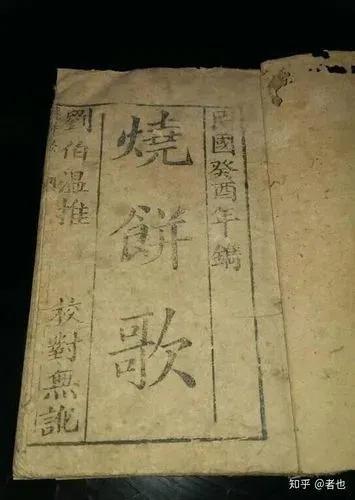 民國癸酉年鐫
燒餅歌
劉伯溫推
校對無訛
知乎 @者也